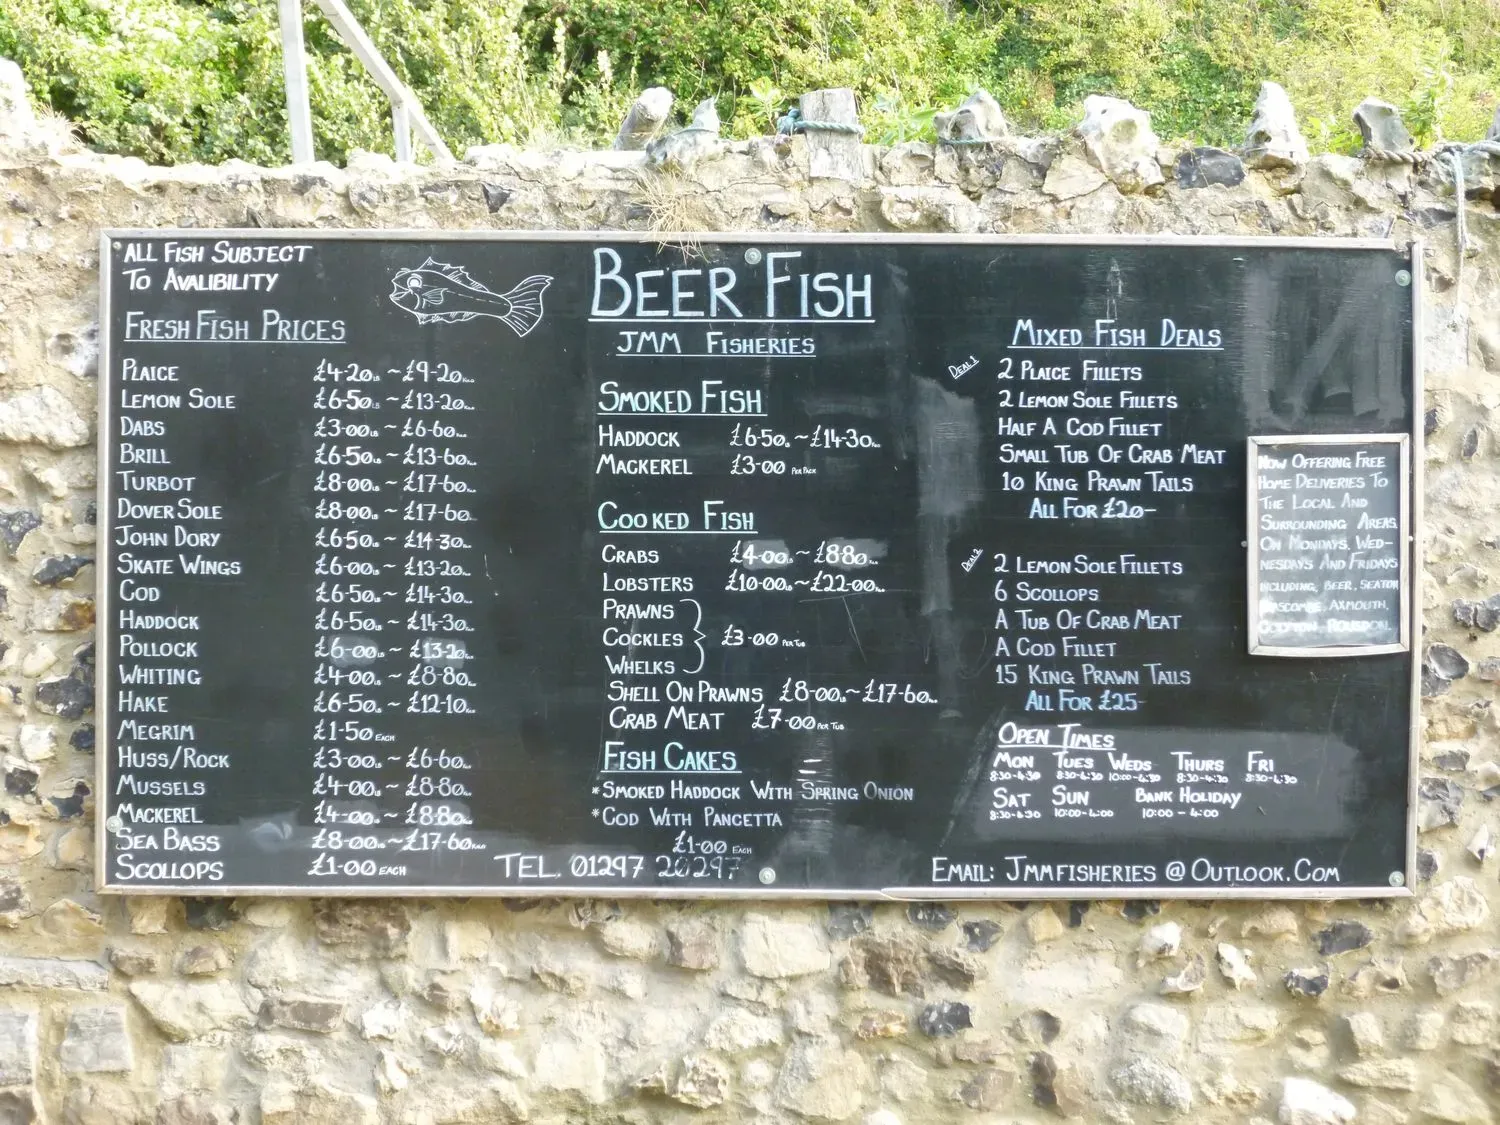 ALL FISH SUBJECT
TO AVALIBILITY
FRESH FISH PRICES
PLAICE £4-20LB ~ £9-20KILO
LEMON SOLE £6-50LB ~ £13-20
DABS £3-00LB ~ £6-60
BRILL £6-50 ~ £13-60
TURBOT £8-00 ~ £17-60
DOVER SOLE £8-00 ~ £17-60
JOHN DORY £6-50 ~ £14-30
SKATE WINGS £6-00 ~ £13-20
COD £6-50 ~ £14-30
HADDOCK £6-50 ~ £14-30
POLLOCK £6-00 ~ £13-20
WHITING £4-00 ~ £8-80
HAKE £6-50 ~ £12-10
MEGRIM £1-50 EACH
HUSS/ROCK £3-00 ~ £6-60
MUSSELS £4-00 ~ £8-80
MACKEREL £4-00 ~ £8-80
SEA BASS £8-00 ~ £17-60
SCOLLOPS £1-00 EACH
BEER FISH
JMM FISHERIES
SMOKED FISH
HADDOCK £6-50 ~ £14-30
MACKEREL £3-00 PER PACK
COOKED FISH
CRABS £4-00 ~ £8-80
LOBSTERS £10-00 ~ £22-00
PRAWNS
COCKLES £3-00 PER TUB
WHELKS
SHELL ON PRAWNS £8-00 ~ £17-60
CRAB MEAT £7-00 PER TUB
FISH CAKES
*SMOKED HADDOCK WITH SPRING ONION
*COD WITH PANCETTA
£1-00 EACH
TEL. 01297 20297
MIXED FISH DEALS
DEAL 1
2 PLAICE FILLETS
2 LEMON SOLE FILLETS
HALF A COD FILLET
SMALL TUB OF CRAB MEAT
10 KING PRAWN TAILS
ALL FOR £20-
DEAL 2
2 LEMON SOLE FILLETS
6 SCOLLOPS
A TUB OF CRAB MEAT
A COD FILLET
15 KING PRAWN TAILS
ALL FOR £25-
OPEN TIMES
MON TUES WEDS THURS FRI
8:30-4:30 8:30-4:30 10:00-4:30 8:30-4:30 8:30-4:30
SAT SUN BANK HOLIDAY
8:30-4:30 10:00-4:00 10:00-4:00
EMAIL: JMMFISHERIES@OUTLOOK.COM
NOW OFFERING FREE
HOME DELIVERIES TO
THE LOCAL AND
SURROUNDING AREAS,
ON MONDAYS, WED-
NESDAYS AND FRIDAYS
INCLUDING, BEER, SEATON
AXMOUTH,